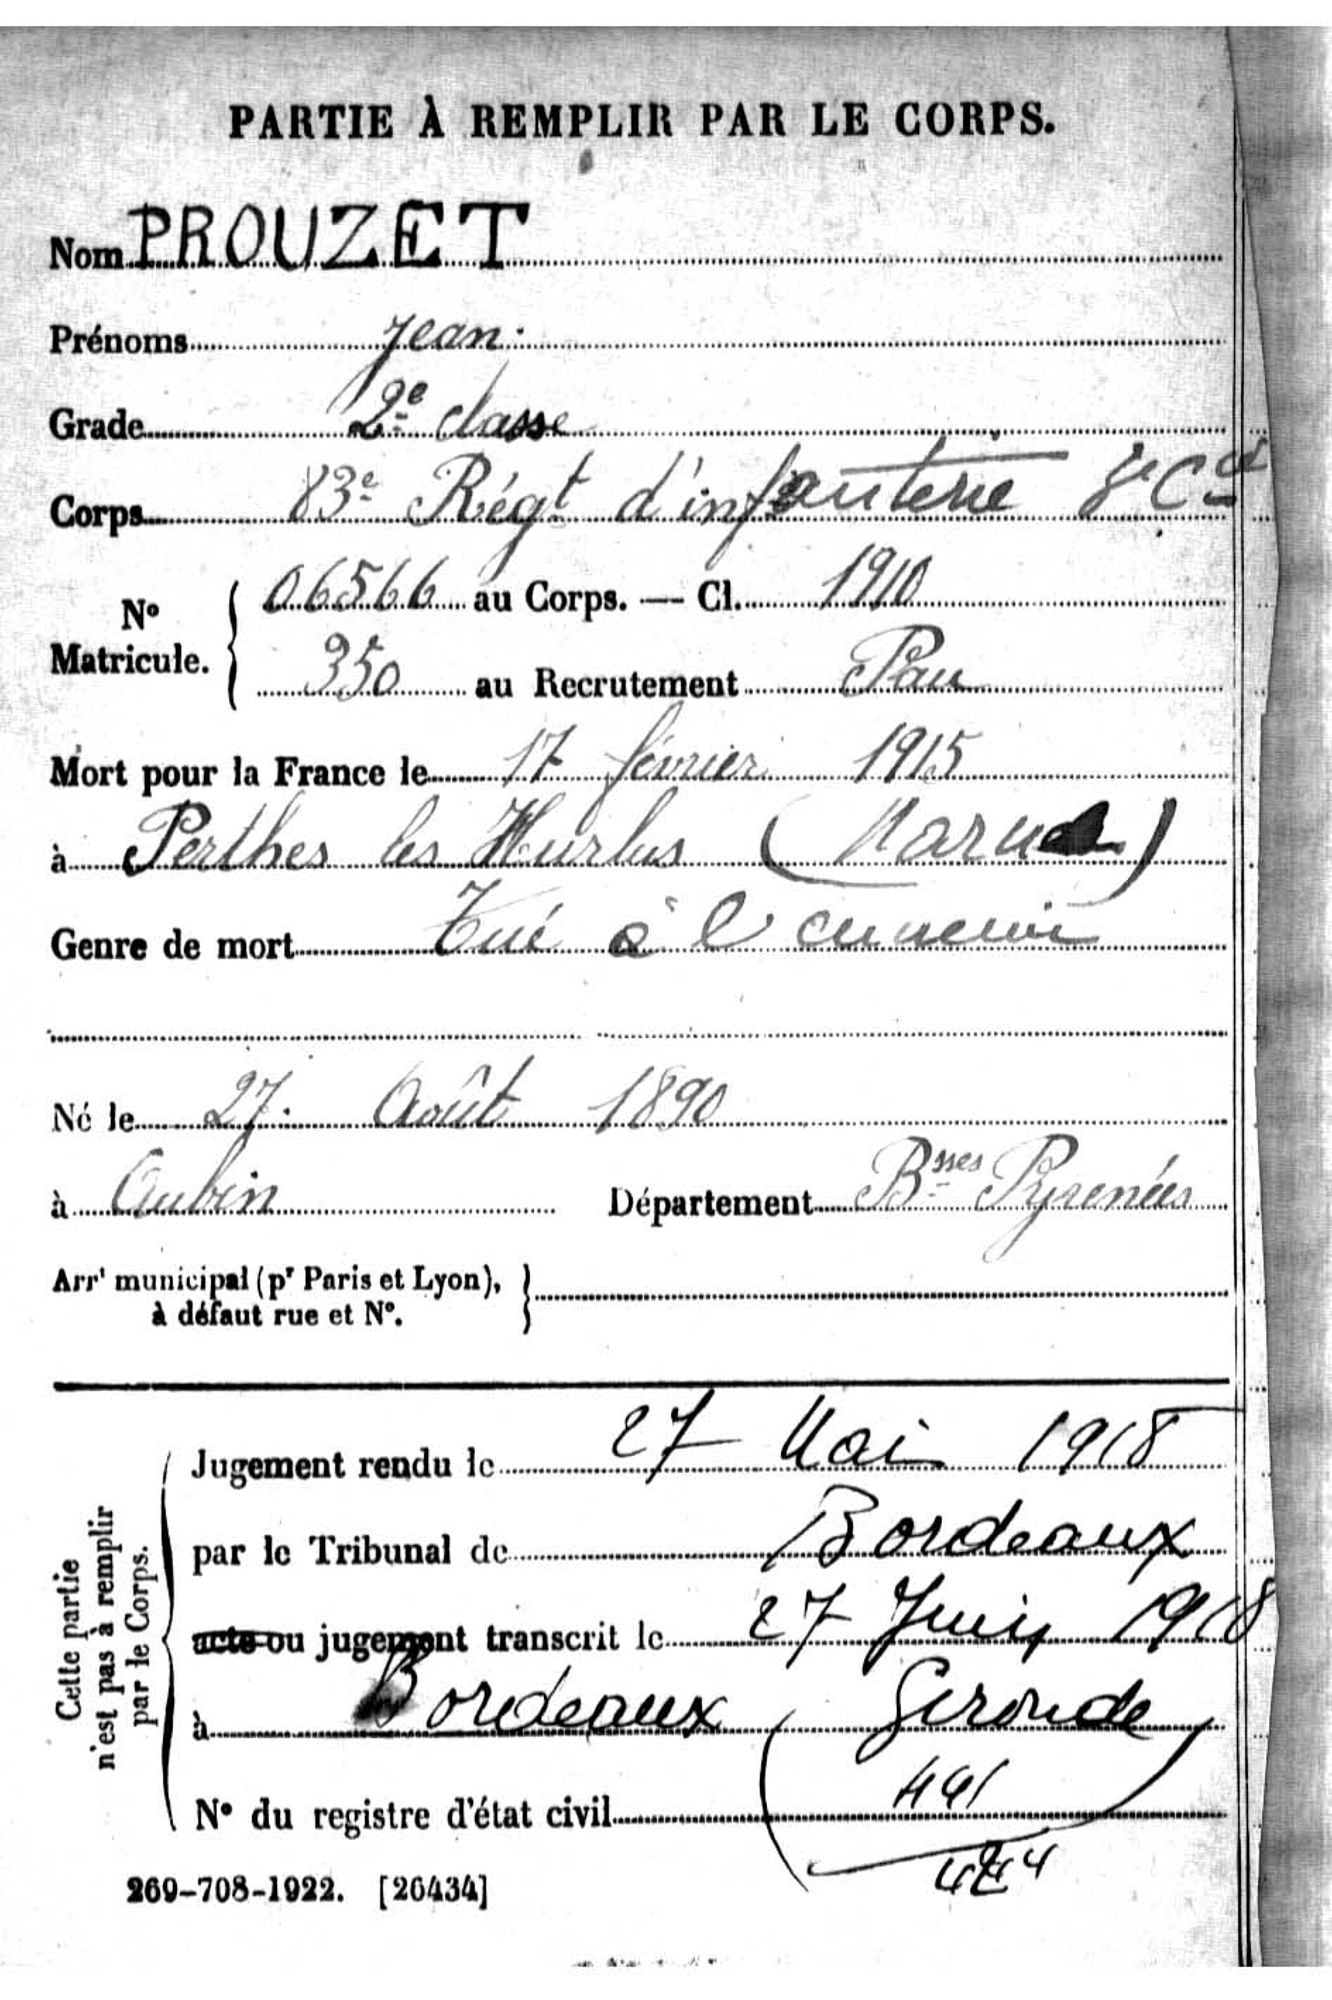 PARTIE À REMPLIR PAR LE CORPS.
Nom PROUZET
Prénoms Jean
Grade 2e classe
Corps 83e Régt d'infanterie 8e Cie
N° Matricule. { 06566 au Corps. — Cl. 1910
350 au Recrutement Pau
Mort pour la France le 17 février 1915
à Perthes les Hurlus (Marne)
Genre de mort Tué à l'ennemi
Né le 27 Août 1890
à Aubin Département Bsses Pyrénées
Arrt municipal (pr Paris et Lyon),
à défaut rue et N°.
Cette partie
n'est pas à remplir
par le Corps.
Jugement rendu le 27 Mai 1918
par le Tribunal de Bordeaux
acte ou jugement transcrit le 27 Juin 1918
à Bordeaux (Gironde)
N° du registre d'état civil
269-708-1922. [26434]